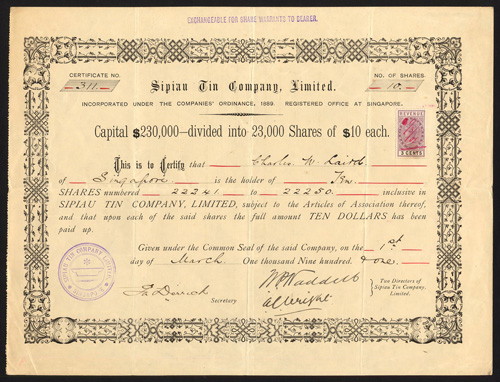 EXCHANGEABLE FOR SHARE WARRANTS TO BEARER.
CERTIFICATE NO. Sipiau Tin Company, Limited. NO. OF SHARES
311 10
INCORPORATED UNDER THE COMPANIES' ORDINANCE, 1889. REGISTERED OFFICE AT SINGAPORE.
Capital $230,000—divided into 23,000 Shares of $10 each.
REVENUE
3 CENTS
This is to Certify that Charles W. Laird
of Singapore is the holder of Ten
SHARES numbered 22241 to 22250 inclusive in
SIPIAU TIN COMPANY, LIMITED, subject to the Articles of Association thereof,
and that upon each of the said shares the full amount TEN DOLLARS has been
paid up.
Given under the Common Seal of the said Company, on the 1st
day of March One thousand Nine hundred & one.
SIPIAU TIN COMPANY LIMITED
Secretary
Two Directors of
Sipiau Tin Company,
Limited.